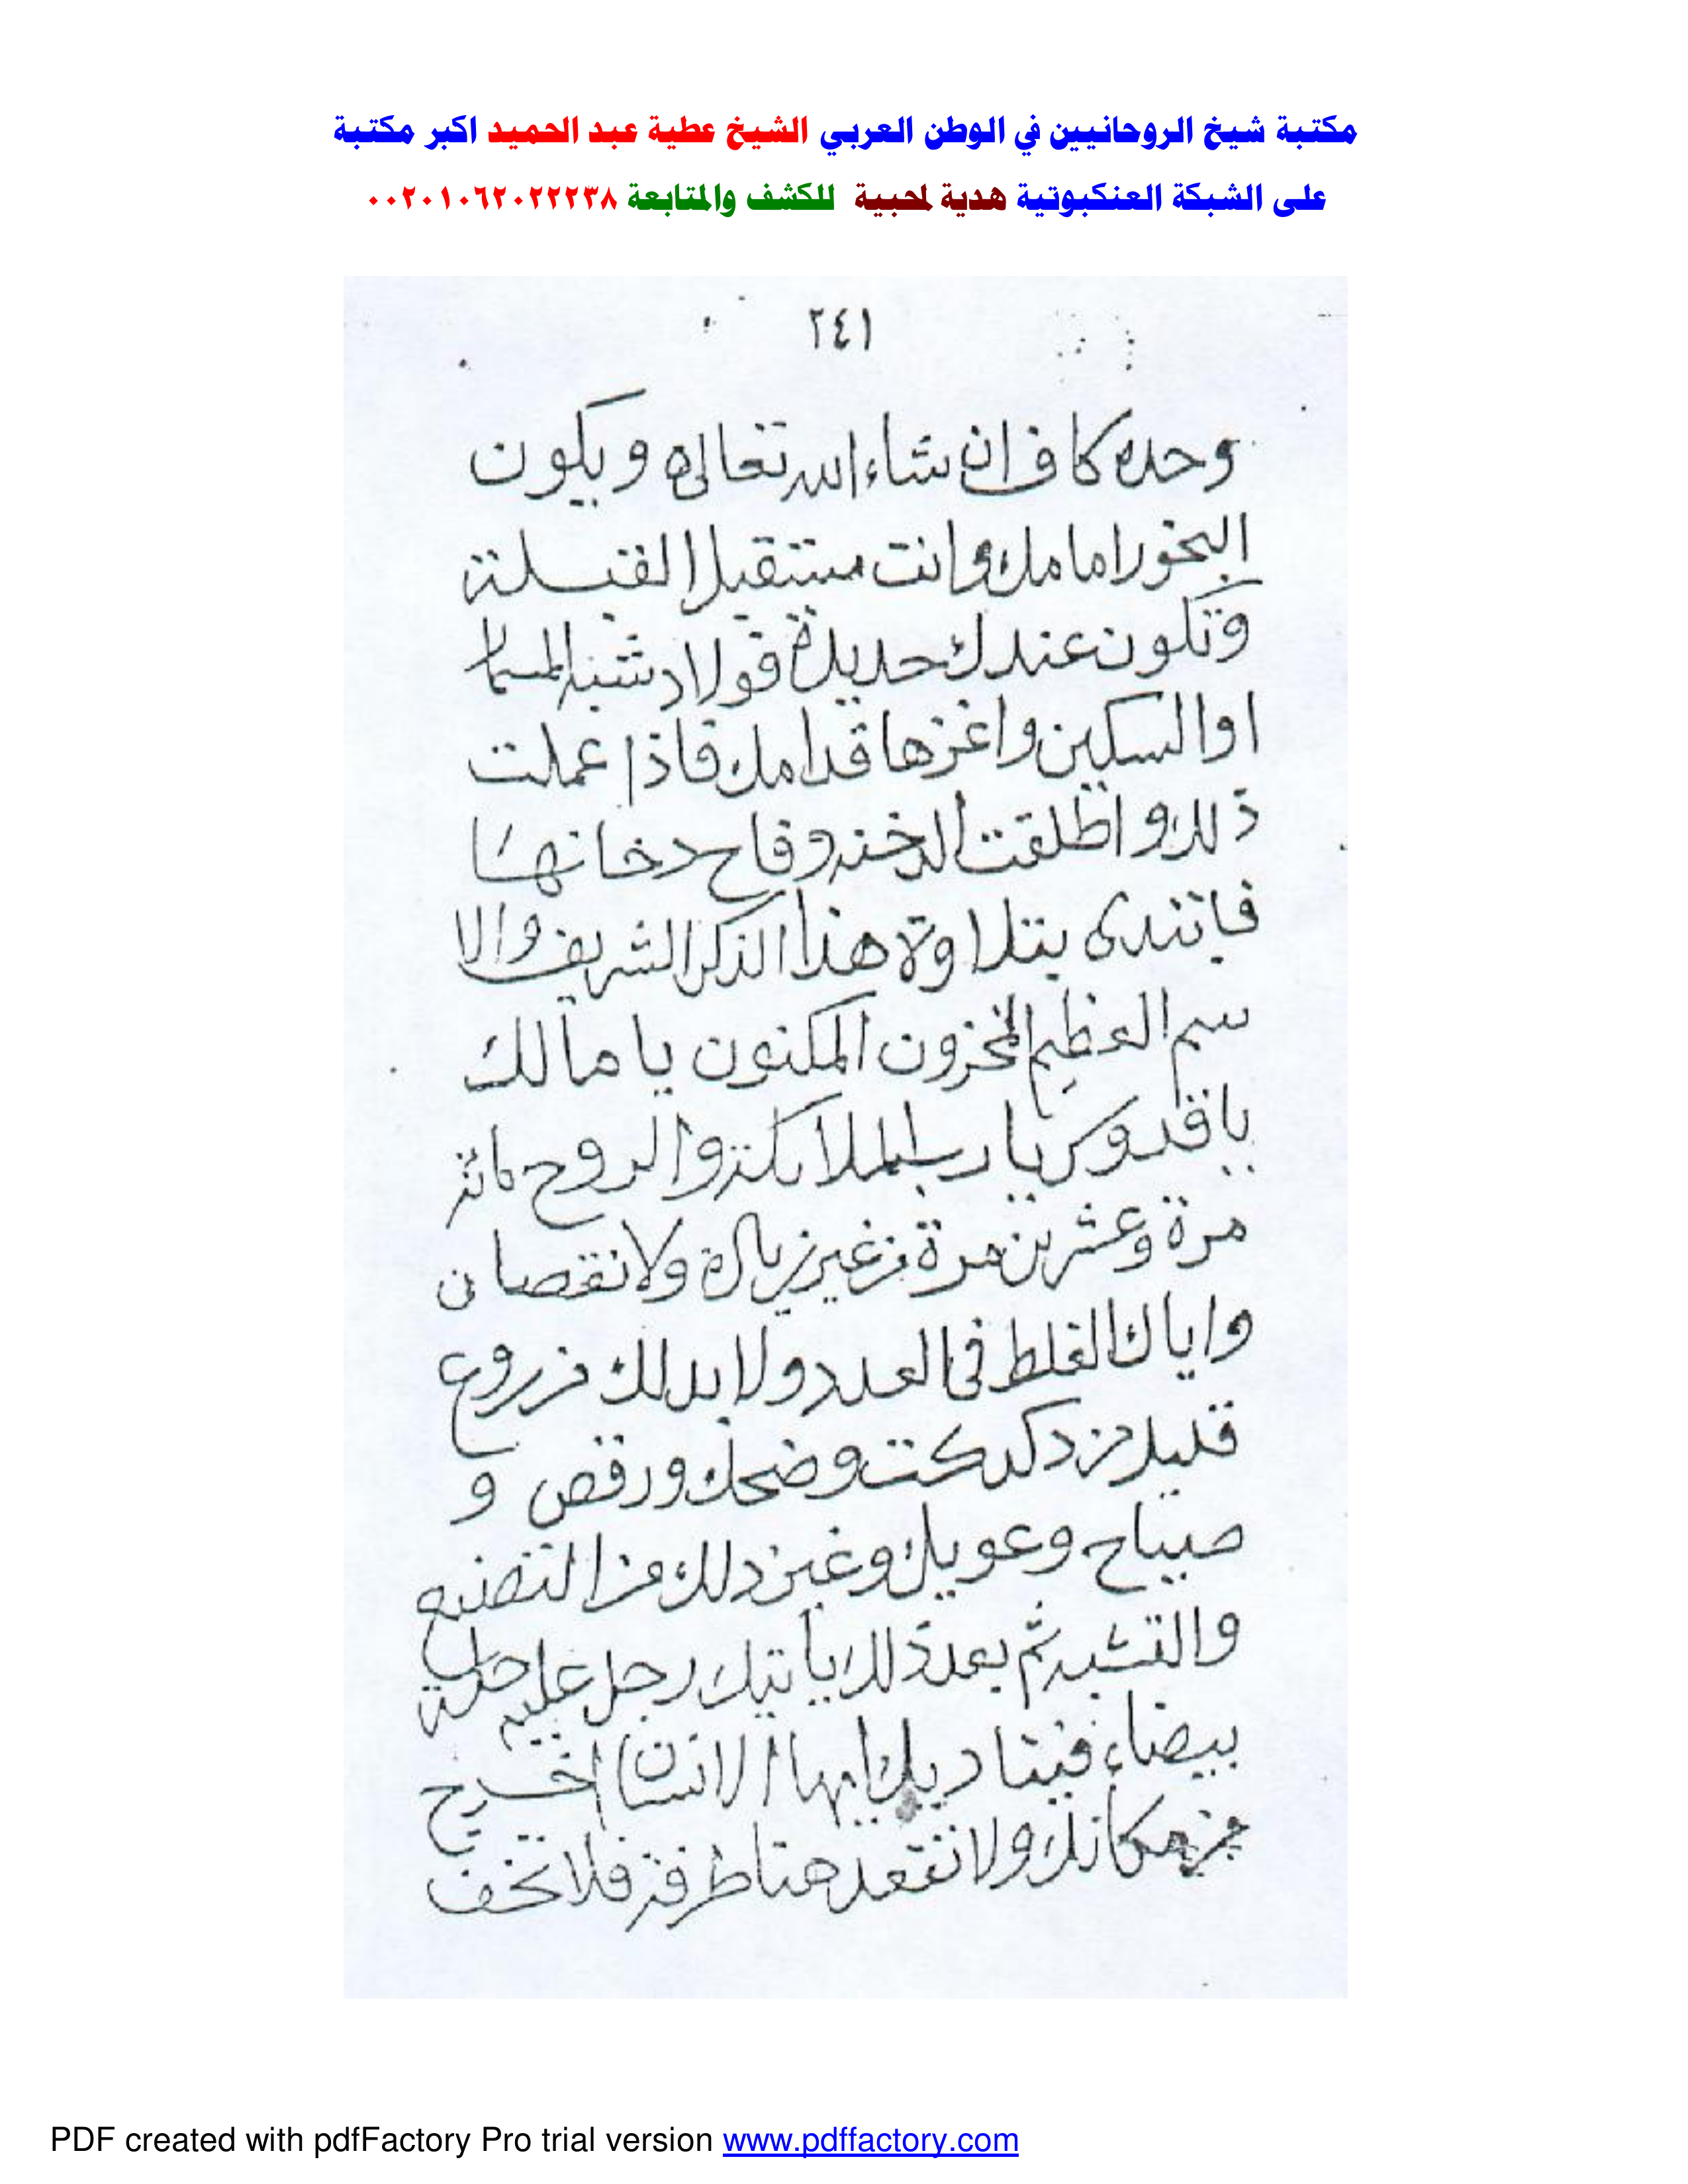 مكتبة شيخ الروحانيين في الوطن العربي الشيخ عطية عبد الحميد اكبر مكتبة
على الشبكة العنكبوتية هدية لمحبية للكشف والمتابعة ٠٠٢٠١٠٦٢٠٢٢٢٣٨
٢٤١
وحده كاف ان شاء الله تعالى ويكون
البخور امامك وانت مستقبل القبلة
وتكون عندك حديدة فولاد شبه المسما
او السكين واغزها قدامك فاذا عملت
ذلك واطلقت الدخنه وفاح دخانها
فابتدى بتلاوة هذا الذكر الشريف والا
سم العظيم المخزون المكنون يا مالك
يا قدوس يا رب الملائكة والروح مائة
مرة وعشرين مرة من غير زيادة ولا نقصان
واياك الغلط فى العدد ولا بد لك من روع
قليل من دكدكت وضحك ورقص و
صياح وعويل وغير ذلك من التصنيع
والتشبه ثم بعد ذلك يأتيك رجل عليه حلة
بيضاء فيناديك ايها الانسان اخرج
من مكانك ولا تقعد هنا طرفة فلا تخف
PDF created with pdfFactory Pro trial version www.pdffactory.com